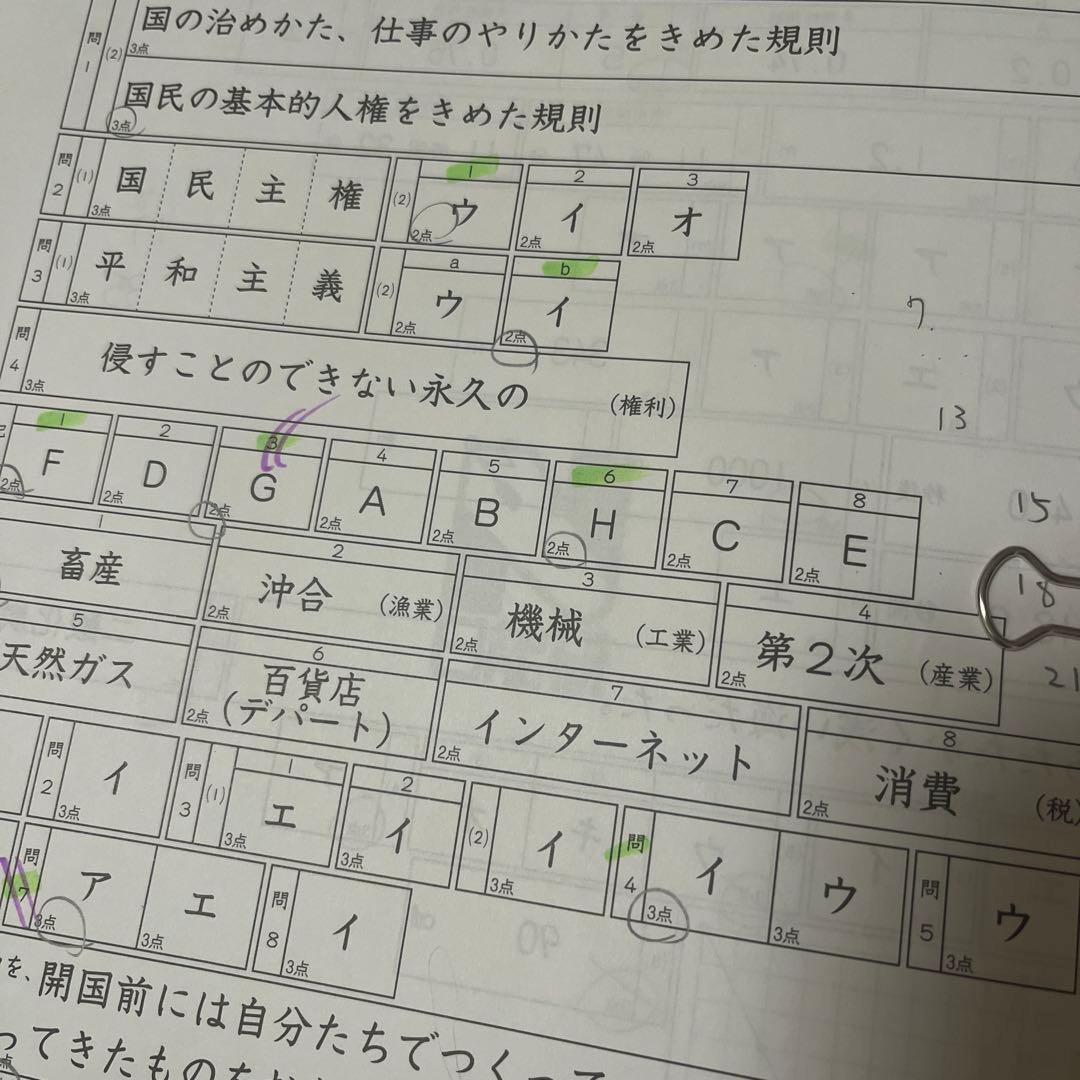 問1 (2) 国の治めかた、仕事のやりかたをきめた規則 3点
国民の基本的人権をきめた規則 3点
問2 (1) 国民主権 3点 (2) 1 ウ 2点 2 イ 2点 3 オ 2点
問3 (1) 平和主義 3点 (2) a ウ 2点 b イ 2点
7.
問4 侵すことのできない永久の (権利) 3点
13
1 F 2点 2 D 2点 3 G 2点 4 A 2点 5 B 2点 6 H 2点 7 C 2点 8 E 2点
15
18
1 畜産 2 沖合 (漁業) 2点 3 機械 (工業) 2点 4 第2次 (産業) 2点
21
5 天然ガス 6 百貨店 (デパート) 2点 7 インターネット 2点 8 消費 (税) 2点
問2 イ 3点 問3 (1) 1 エ 3点 2 イ 3点 (2) イ 3点 問4 イ 3点 ウ 3点 問5 ウ 3点
問7 ア 3点 エ 3点 問8 イ 3点
を、開国前には自分たちでつくって
ってきたものを